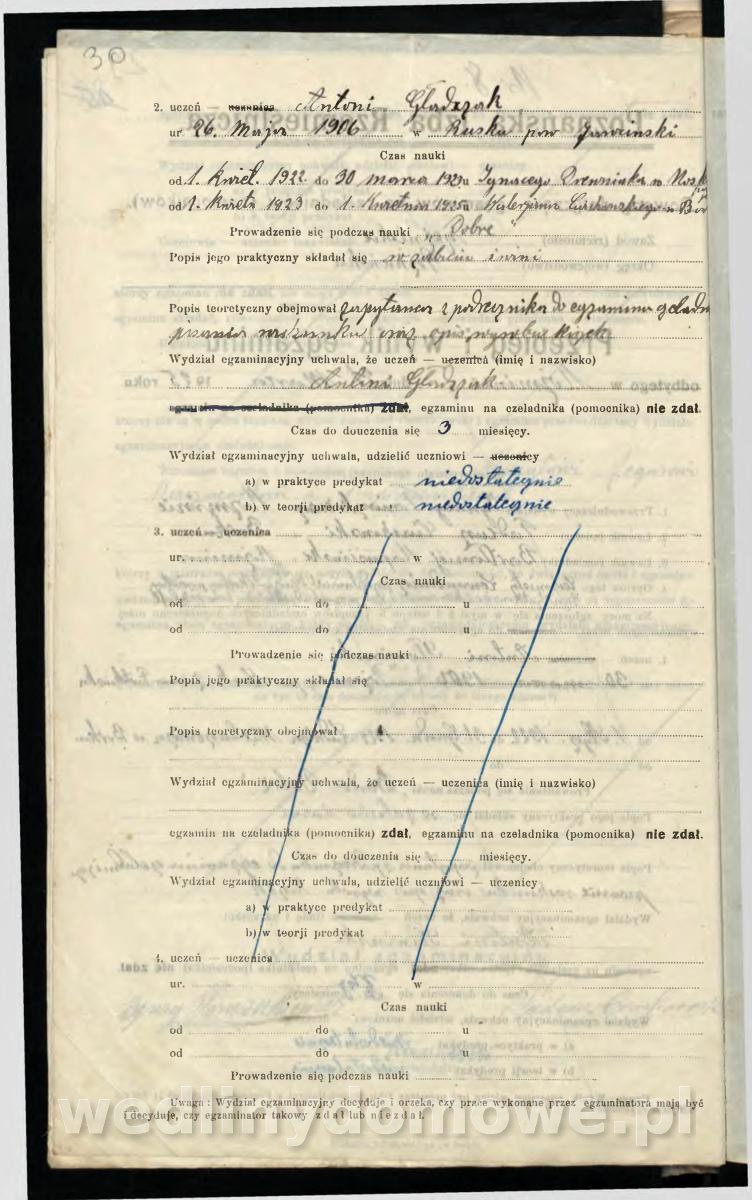 30
2. uczeń — uczenica Antoni Gładzyak
ur 26. Maja 1906 w Rusku pow Jarocinski
Czas nauki
od 1. Kwiet. 1922. do 30 marca 1923 u Ignacego Drewniaka w
od 1. Kwiet. 1923 do 1. Kwietnia 1925 u Waleryana w
Prowadzenie się podczas nauki „Dobre"
Popis jego praktyczny składał się w zabiciu świni
Popis teoretyczny obejmował zapytania z podręcznika do egzaminu czeladn
pisania rachunku oraz opis wyrobu
Wydział egzaminacyjny uchwala, że uczeń — uczenica (imię i nazwisko)
Antoni Gładzyak
egzamin na czeladnika (pomocnika) zdał, egzaminu na czeladnika (pomocnika) nie zdał.
Czas do douczenia się 3 miesięcy.
Wydział egzaminacyjny uchwala, udzielić uczniowi — uczenicy
a) w praktyce predykat niedostatecznie
b) w teorji predykat niedostatecznie
3. uczeń — uczenica
ur. w
Czas nauki
od do u
od do u
Prowadzenie się podczas nauki
Popis jego praktyczny składał się
Popis teoretyczny obejmował
Wydział egzaminacyjny uchwala, że uczeń — uczenica (imię i nazwisko)
egzamin na czeladnika (pomocnika) zdał, egzaminu na czeladnika (pomocnika) nie zdał.
Czas do douczenia się miesięcy.
Wydział egzaminacyjny uchwala, udzielić uczniowi — uczenicy
a) w praktyce predykat
b) w teorji predykat
4. uczeń — uczenica
ur. w
Czas nauki
od do u
od do u
Prowadzenie się podczas nauki
Uwaga: Wydział egzaminacyjny decyduje i orzeka, czy prace wykonane przez egzaminatora mają być
i decyduje, czy egzaminator takowy zdał lub nie zdał.
wedlinydomowe.pl